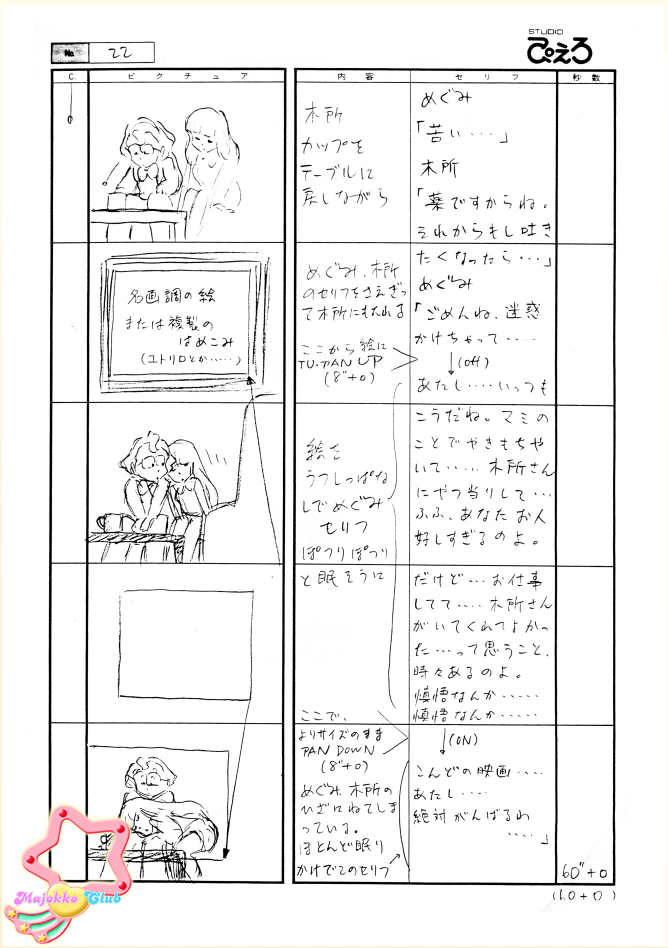 No. 22
STUDIO
ぴえろ
C. ピクチュア 内容 セリフ 秒数
木所
カップを
テーブルに
戻しながら
めぐみ
「苦い・・・」
木所
「薬ですからね。
それからもし吐き
たくなったら・・・」
名画調の絵
または複製の
はめこみ
(ユトリロとか・・・・・)
めぐみ、木所
のセリフをさえぎっ
て木所にもたれる
ここから絵に
T.U・PAN UP
(8"+0)
めぐみ
「ごめんね、迷惑
かけちゃって・・・・
(off)
あたし・・・・いっつも
絵を
うつしっぱな
しでめぐみ
セリフ
ぽつりぽつり
と眠そうに
こうだね。マミの
ことでやきもちや
いて・・・・・木所さん
にやつ当りして・・・
ふふ、あなたお人
好しすぎるのよ。
だけど・・・お仕事
してて・・・・木所さん
がいてくれてよかっ
た・・・って思うこと、
時々あるのよ。
慎悟なんか・・・・・
慎悟なんか・・・・・
ここで、
よりサイズのまま
PAN DOWN
(8"+0)
めぐみ木所の
ひざにねてしま
っている。
ほとんど眠り
かけでこのセリフ
(ON)
こんどの映画・・・・
あたし・・・・
絶対がんばるわ
・・・・」
60"+0
(1.0+0)
Majokko Club